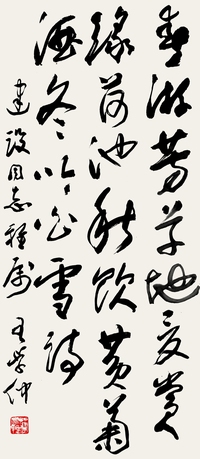 春游芳草地夏赏
绿荷池秋饮黄菊
酒冬吟白雪诗
建设同志雅属 王学仲